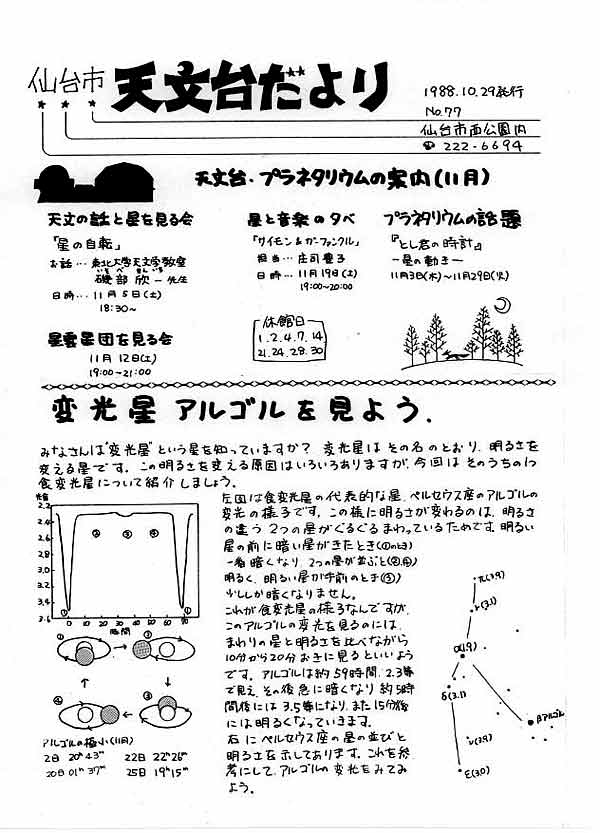 仙台市 天文台だより
1988.10.29発行
No.77
仙台市西公園内
☎ 222-6694
天文台・プラネタリウムの案内(11月)
天文の話と星を見る会
「星の自転」
お話…東北大学天文学教室
いそべ きんいち
磯部欣一先生
日時…11月5日(土)
18:30~
星雲星団を見る会
11月12日(土)
19:00~21:00
星と音楽の夕べ
「サイモン&ガーファンクル」
担当…庄司豊子
日時…11月19日(土)
19:00~20:00
休館日
1.2.4.7.14
21.24.28.30
プラネタリウムの話題
『とし君の時計』
―星の動き―
11月3日(木)~11月29日(火)
変光星 アルゴルを見よう.
みなさんは“変光星”という星を知っていますか? 変光星は その名のとおり、明るさを
変える星です。この明るさを変える原因はいろいろありますが、今回は そのうちの1つ
食変光星について紹介しましょう。
左図は食変光星の代表的な星、ペルセウス座のアルゴルの
変光の様子です。この様に明るさが変わるのは、明るさ
の違う2つの星がぐるぐるまわっているためです。明るい
星の前に暗い星がきたとき(①のとき)
一番暗くなり、2つの星が並ぶと(②,④)
明るく、明るい星が手前のとき(③)
少ししか暗くなりません。
これが食変光星の様子なんですが、
このアルゴルの変光を見るのには、
まわりの星と明るさを比べながら
10分から20分おきに見るといいよう
です。アルゴルは約59時間、2.3等
で見え、その後急に暗くなり 約5時
間後には3.5等になり、また15分後
には明るくなっていきます。
右にペルセウス座の星の並びと
明るさを示してあります。これを参
考にして、アルゴルの変光をみてみ
よう。
光度
2.2
2.4
2.6
2.8
3.0
3.2
3.4
3.6
① ② ③ ④ ①
0 10 20 30 40 50 60 70
時間
① ③
④ ②
アルゴルの極小(11月)
2日 20ʰ43ᵐ 22日 22ʰ26ᵐ
20日 01ʰ37ᵐ 25日 19ʰ15ᵐ
α(1.9)
δ(3.1)
βアルゴル
ν(3.9)
ε(3.0)